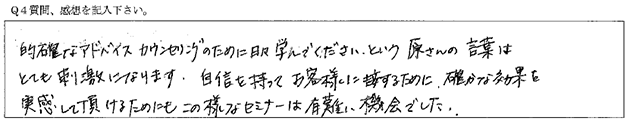 Q4質問、感想を記入下さい。
的確なアドバイス カウンセリングのために日々学んでください.という 原さんの 言葉は
とても刺激になります. 自信を持って お客様に接するために、確かな効果を
実感して頂けるためにも この様なセミナーは有難い機会でした.